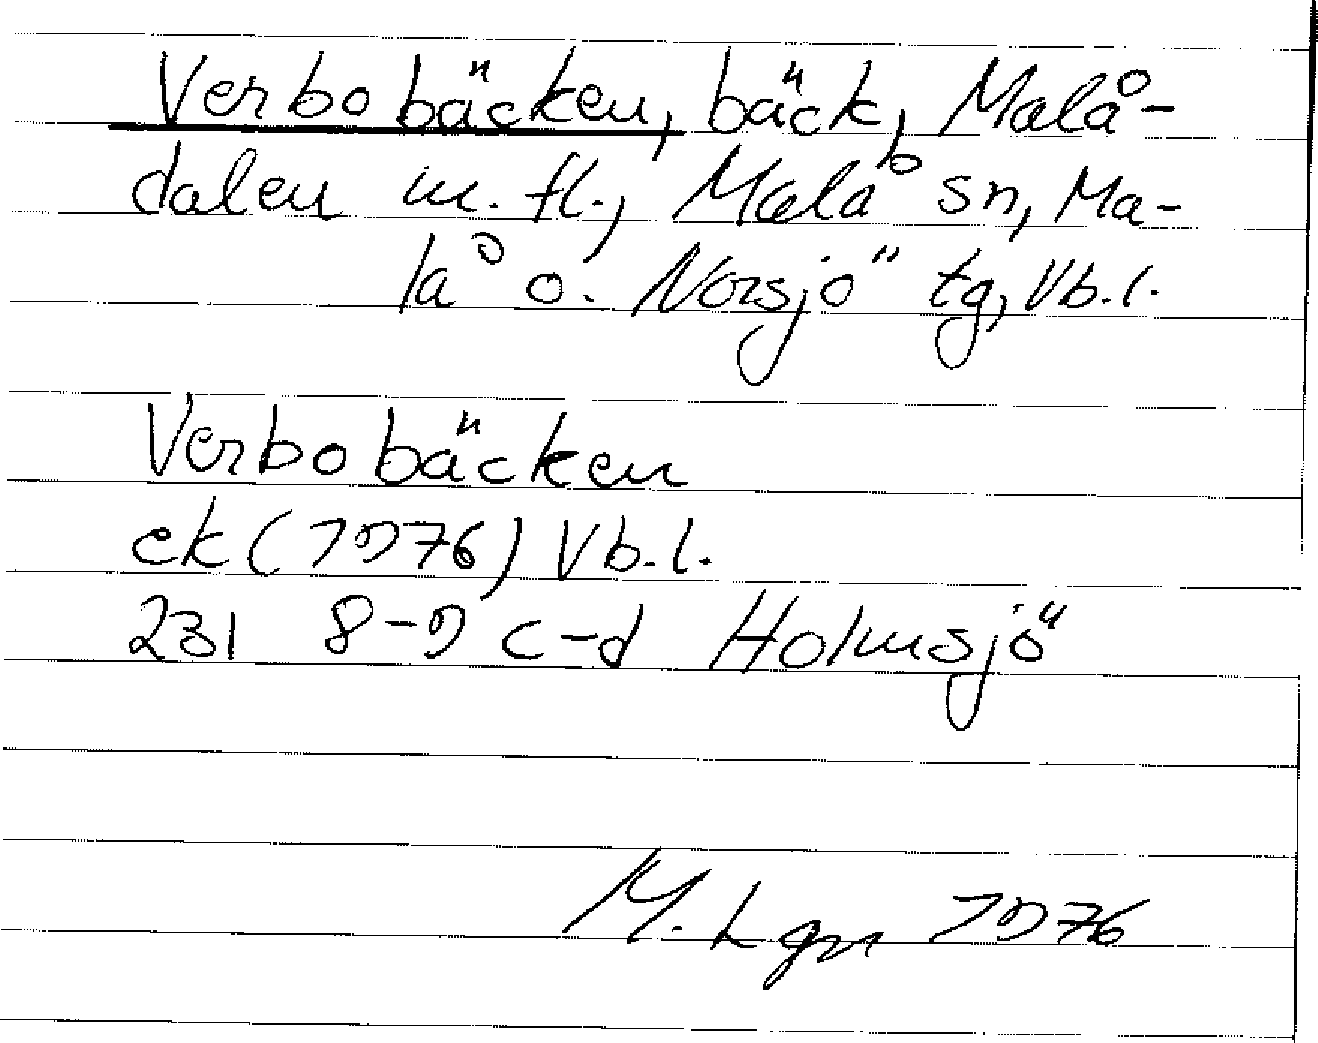 Verbobäcken, bäck, Malå-
dalen m. fl., Malå sn, Ma-
lå o. Norsjö tg, Vb. l.
Verbobäcken
ek (1976) Vb. l.
231 8-9 c-d Holmsjö
M. Lgn 1976